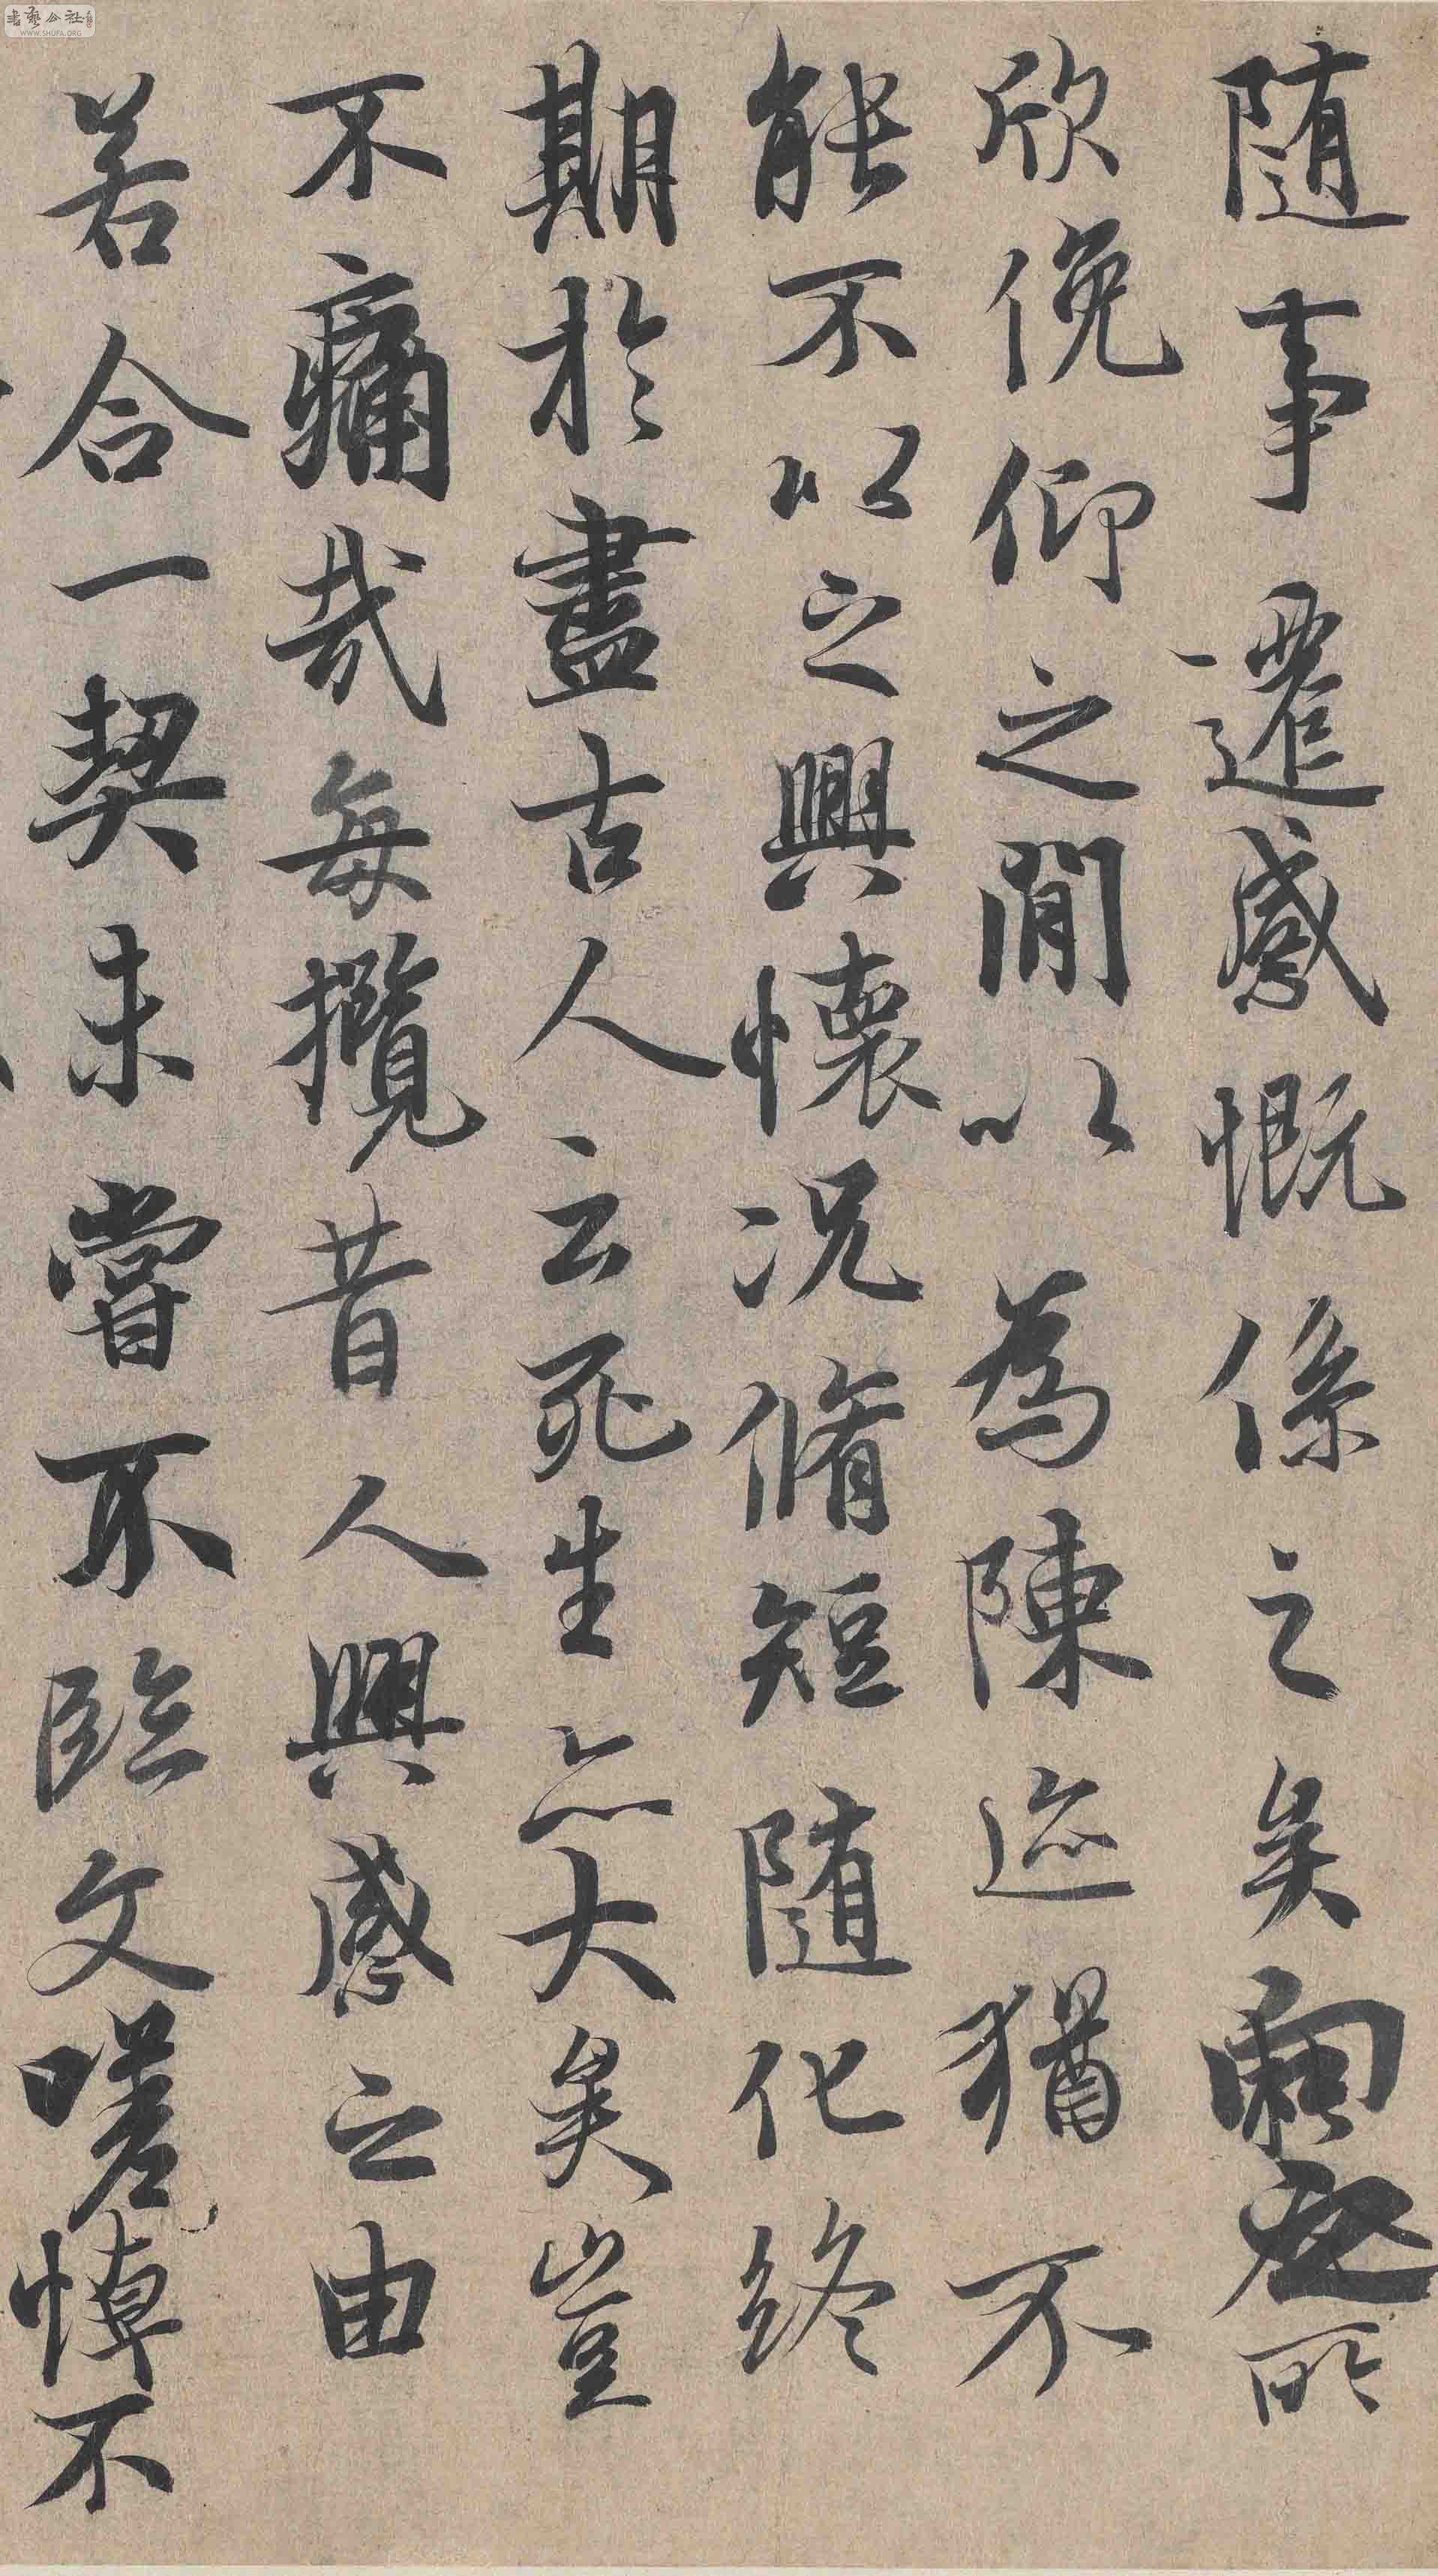 随事遷感慨係之矣向之所
欣俛仰之閒以為陳迹猶不
能不以之興懷況脩短随化終
期於盡古人云死生亦大矣豈
不痛哉每攬昔人興感之由
若合一契未嘗不臨文嗟悼不
書藝公社
WWW.SHUFA.ORG